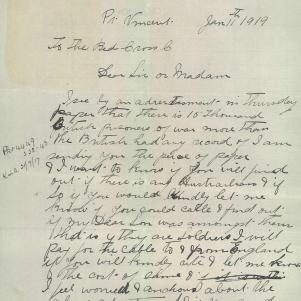 Pt Vincent. Jan 11th 1919
To the Red Cross C
Dear Sir or Madam
I see by an advertisement in Thursday
paper that there is 10 thousand
British prisoners of war more than
the British had any record of I am
sending you the piece of paper
& I want to know if you will find
out if there is any Australians & if
so if you would kindly let me
know if you could cable & find out
if my Dear Son was amongst them
that is if they are soldiers I will
pay for the cable to & from England
if you will kindly do it & let me know
the cost of same & if
I feel worried & anxious about the